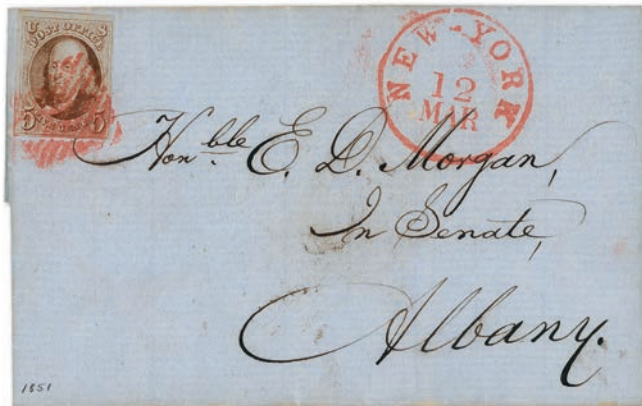 U S
POST OFFICE
5 5
NEW-YORK
12
MAR
Hon.ble E. D. Morgan,
In Senate,
Albany.
1851